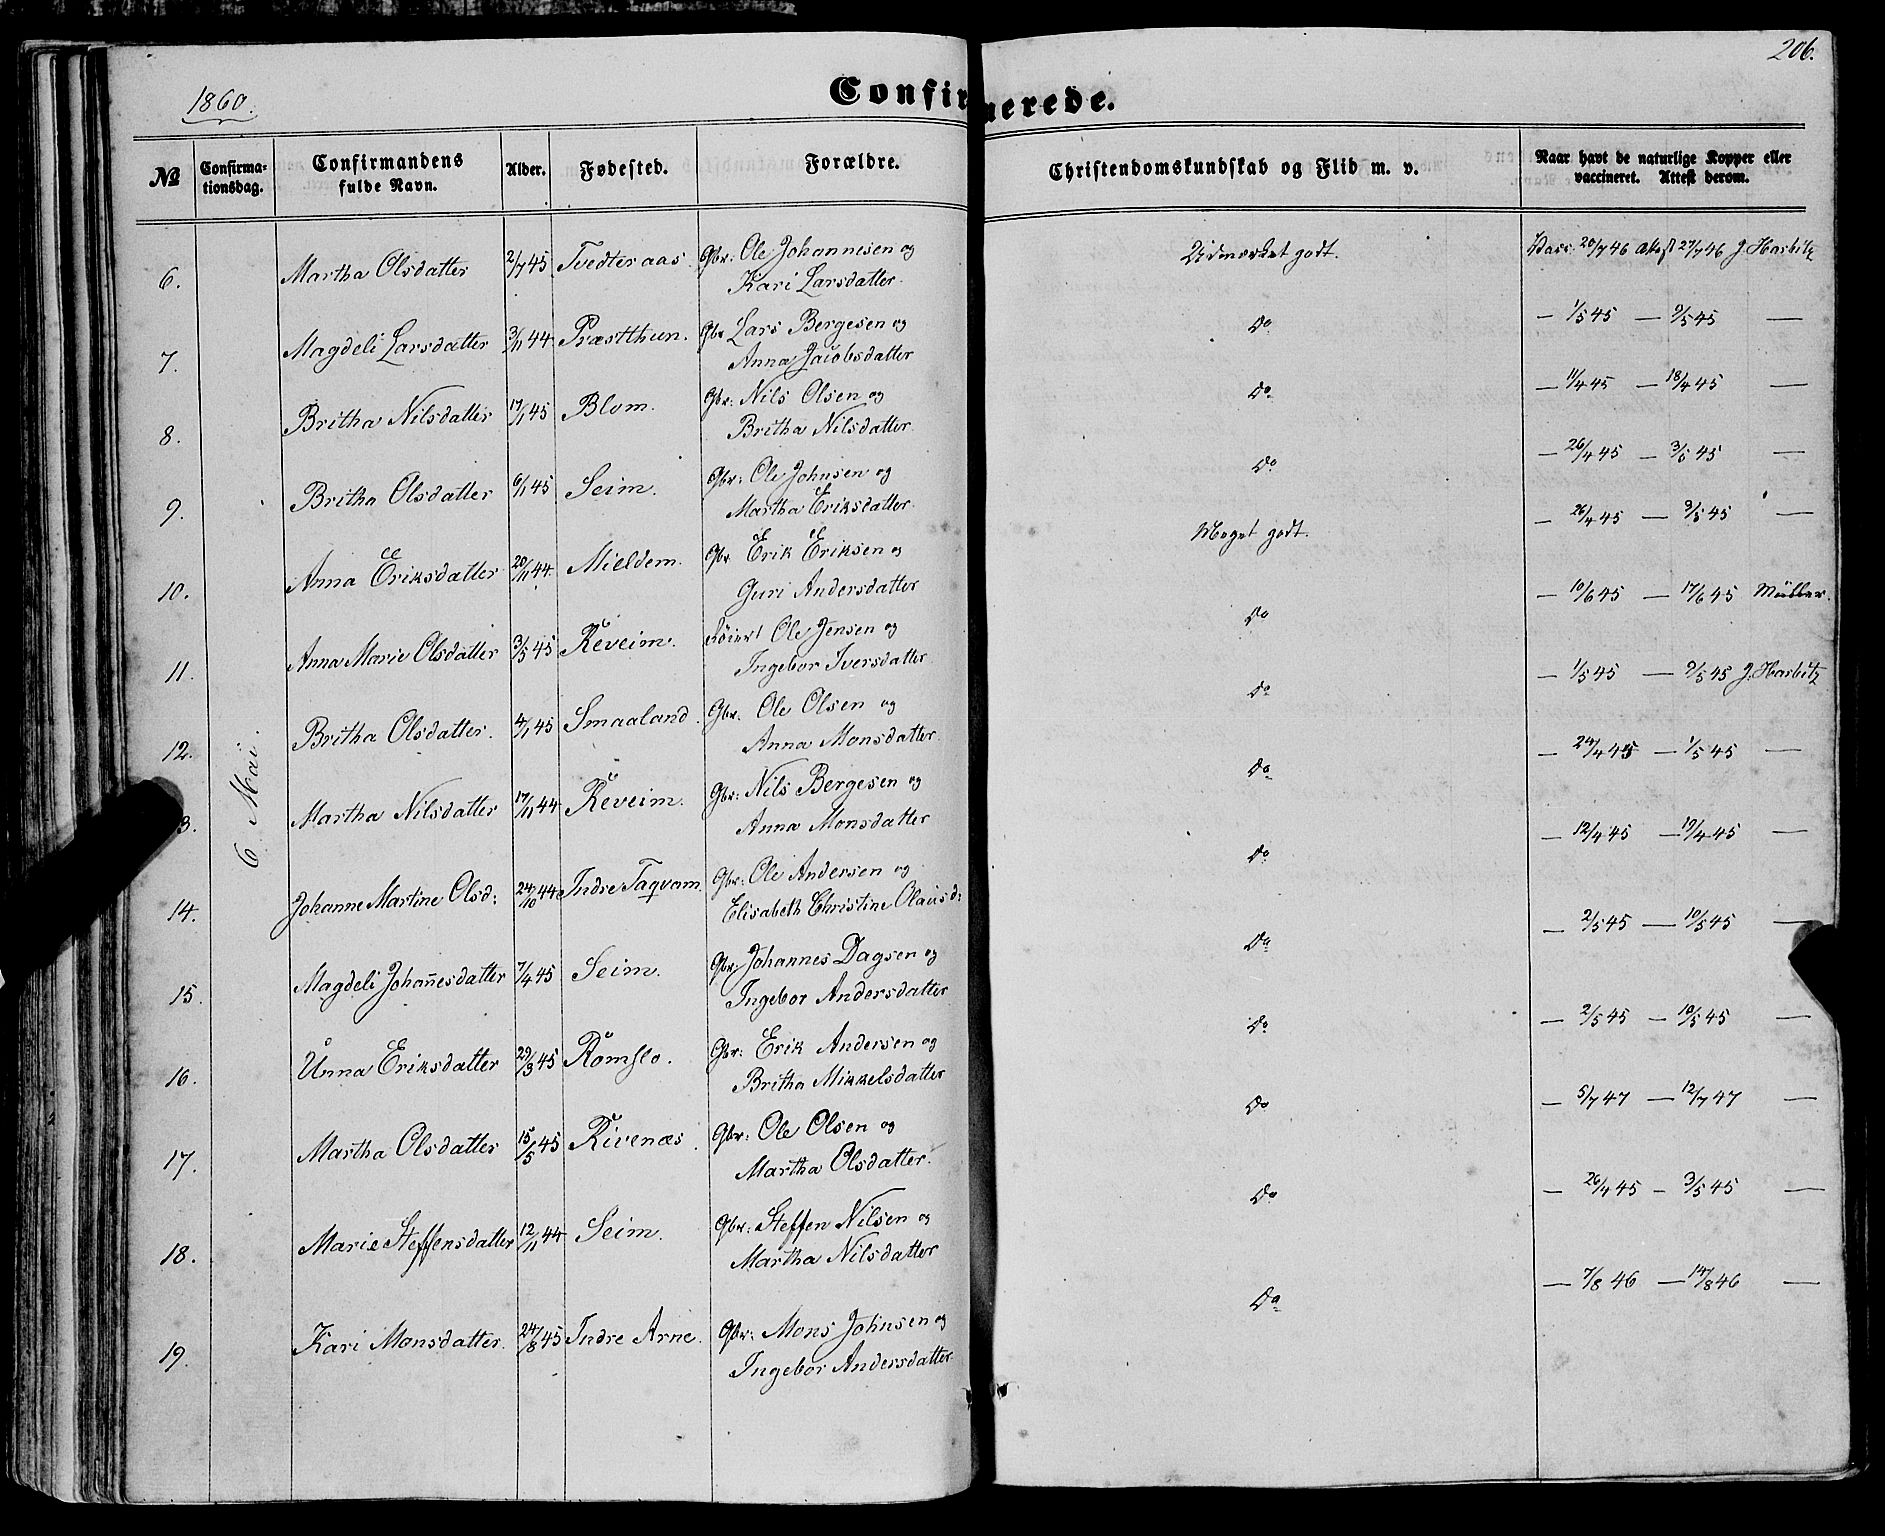 206.
1860.
Confirmerede.
№ Confirma-tionsdag. Confirmandens fulde Navn. Alder. Fødested. Forældre. Christendomskundskab og Flid m. v. Naar havt de naturlige Kopper eller vaccineret. Attest derom.
6. Mai.
6. Martha Olsdatter 2/7 45 Tvedteraas Gbr: Ole Johannesen og Udmærket godt. Vacc: 20/7 46 Attest 27/7 46 J. Harbitz
Kari Larsdatter.
7. Magdeli Larsdatter 3/11 44 Præstthun. Gbr Lars Bergesen og Do — 1/5 45 — 9/5 45 —
Anna Jacobsdatter
8. Britha Nilsdatter 17/1 45 Blom. Gbr: Nils Olsen og Do — 11/4 45 — 18/4 45 —
Britha Nilsdatter
9. Britha Olsdatter 6/1 45 Seim. Gbr: Ole Johnsen og Do — 26/4 45 — 3/5 45 —
Martha Eriksdatter.
10. Anna Eriksdatter 20/11 44 Mieldem. Gbr Erik Eriksen og Meget godt. — 26/4 45 — 3/5 45 —
Guri Andersdatter
11. Anna Marie Olsdatter 3/5 45 Reveim. Ole Jensen og Do — 10/6 45 — 17/6 45 Müller.
Ingebor Iversdatter
12. Britha Olsdatter. 4/1 45 Smaaland. Gbr. Ole Olsen og Do — 1/5 45 — 9/5 45 J. Harbitz
Anna Monsdatter.
3. Martha Nilsdatter 17/11 44 Reveim. Gbr: Nils Bergesen og Do — 24/4 45 — 1/5 45 —
Anna Monsdatter
14. Johanne Martine Olsd: 24/10 44 Indre Taqvam. Gbr: Ole Andersen og Do — 12/4 45 — 19/4 45 —
Elisabeth Christine Olausd:
15. Magdeli Johan̄esdatter 7/4 45 Seim. Gbr: Johannes Dagsen og Do — 2/5 45 — 10/5 45 —
Ingebor Andersdatter
16. Unna Eriksdatter 29/3 45 Romslo. Gbr: Erik Andersen og Do — 2/5 45 — 10/5 45 —
Britha Mikkelsdatter
17. Martha Olsdatter 15/5 45 Rivenæs. Gbr: Ole Olsen og Do — 5/7 47 — 12/7 47 —
Martha Olsdatter.
18. Marie Steffensdatter 12/11 44 Seim. Gbr: Steffen Nilsen og Do — 26/4 45 — 3/5 45 —
Martha Nilsdatter
19. Kari Monsdatter. 24/8 45 Indre Arne. Gbr: Mons Johnsen og Do — 7/8 46 — 14/8 46 —
Ingebor Andersdatter